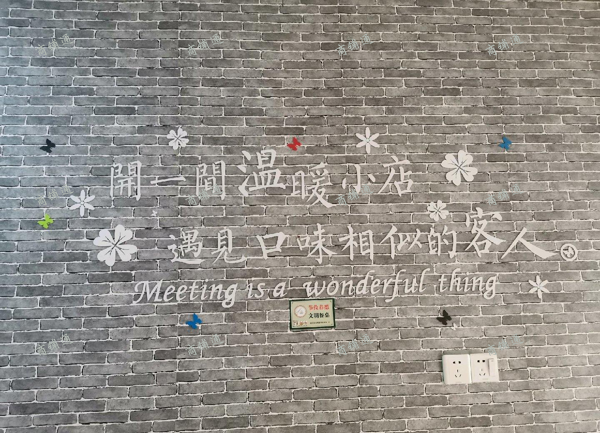 開一間溫暖小店
遇見口味相似的客人
Meeting is a wonderful thing
文明餐桌